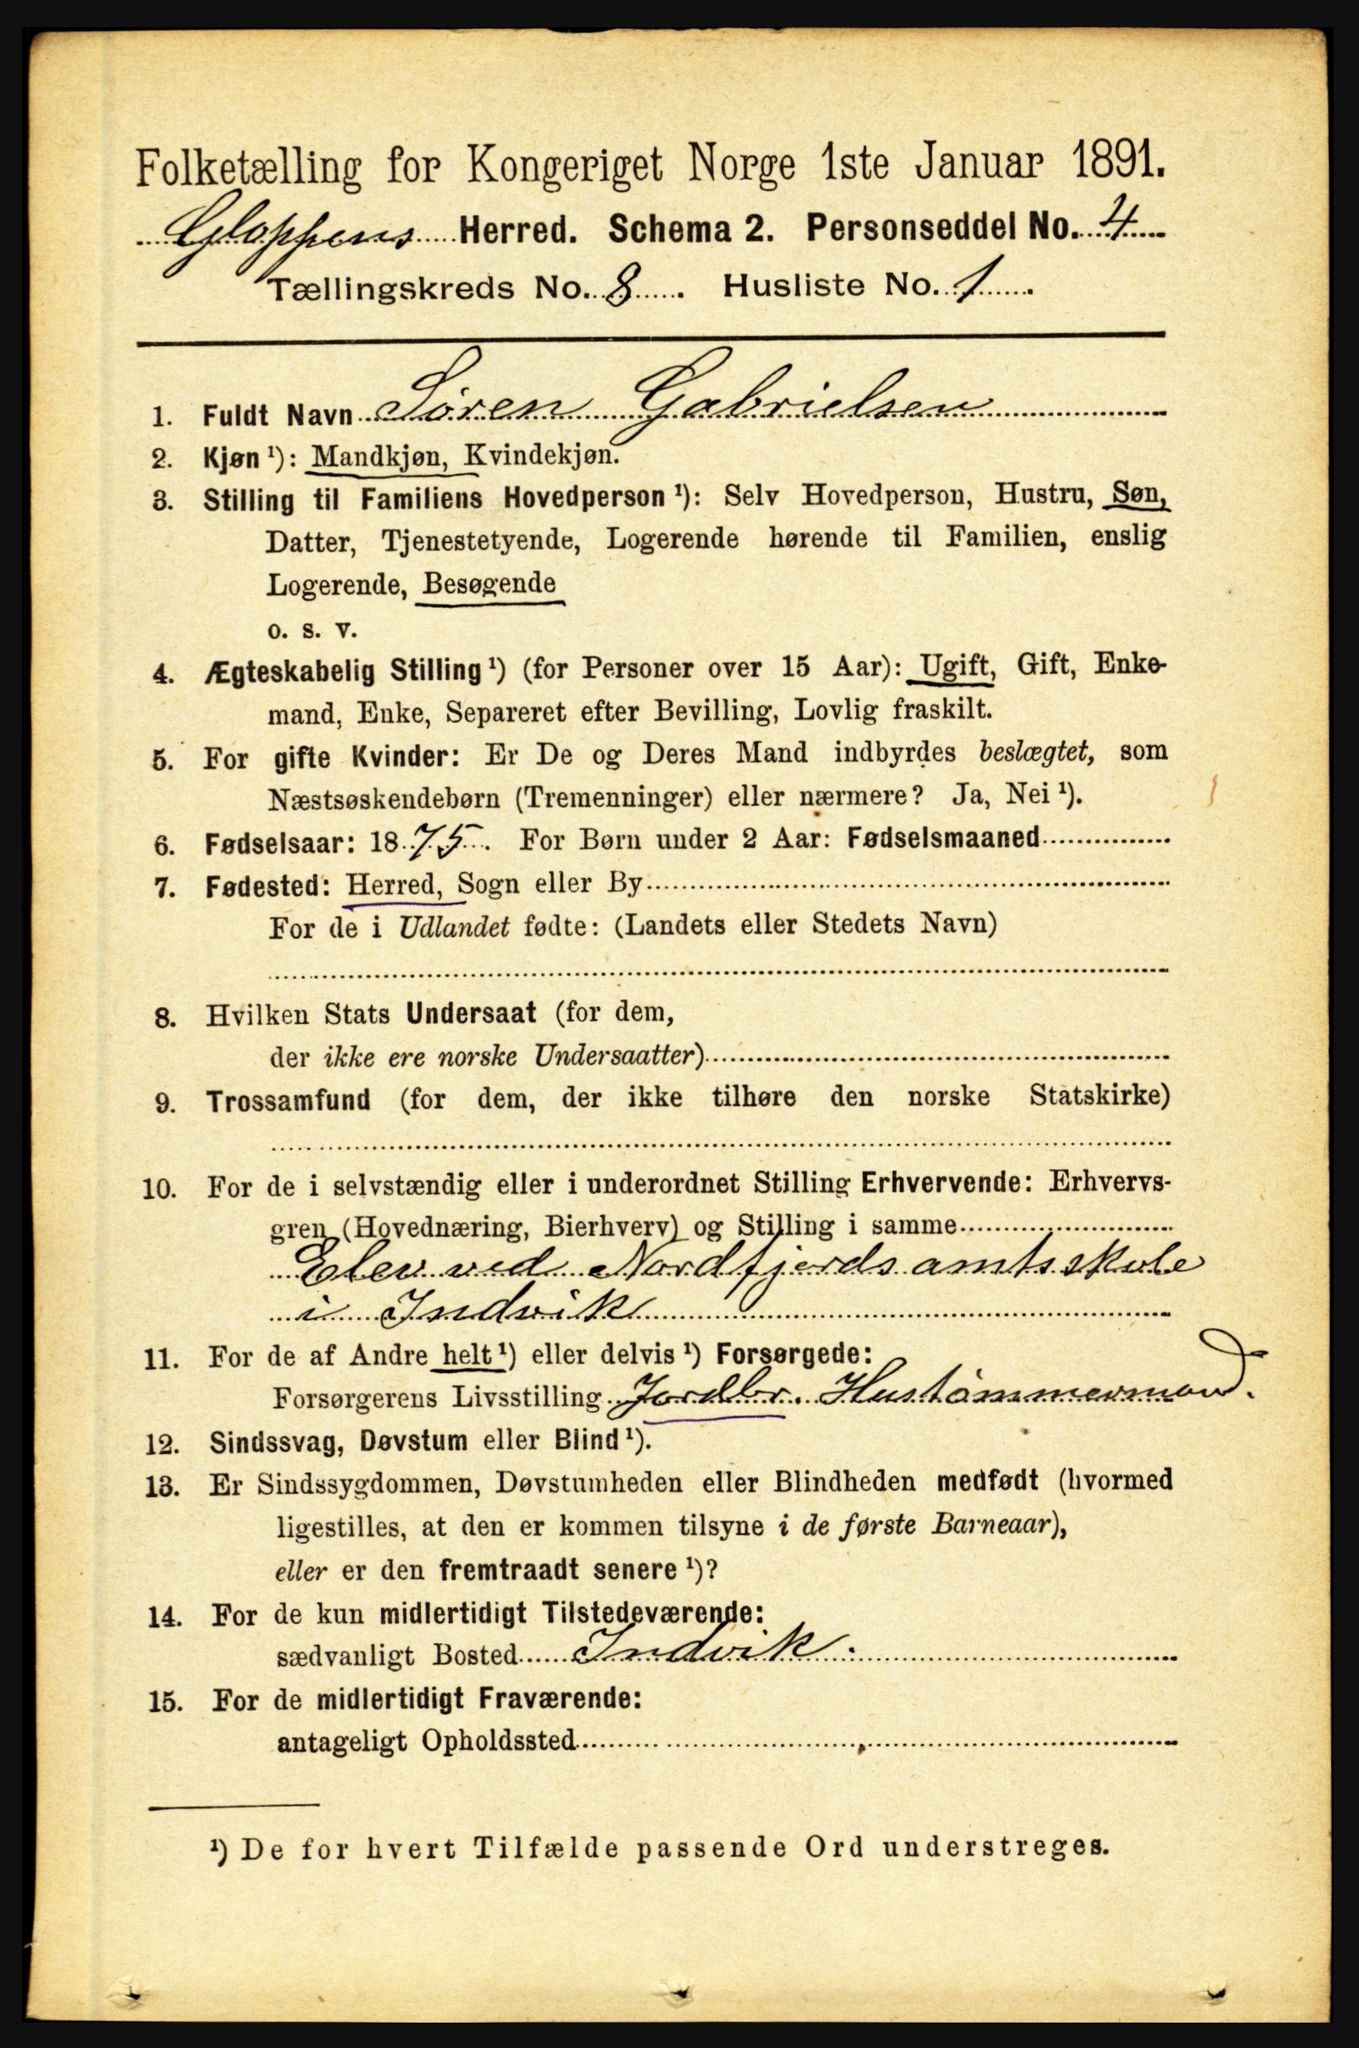 Folketælling for Kongeriget Norge 1ste Januar 1891.
Gloppens Herred. Schema 2. Personseddel No. 4
Tællingskreds No. 8. Husliste No. 1.
1. Fuldt Navn Søren Gabrielsen
2. Kjøn ¹): Mandkjøn, Kvindekjøn.
3. Stilling til Familiens Hovedperson ¹): Selv Hovedperson, Hustru, Søn,
Datter, Tjenestetyende, Logerende hørende til Familien, enslig
Logerende, Besøgende
o. s. v.
4. Ægteskabelig Stilling ¹) (for Personer over 15 Aar): Ugift, Gift, Enke-
mand, Enke, Separeret efter Bevilling, Lovlig fraskilt.
5. For gifte Kvinder: Er De og Deres Mand indbyrdes beslægtet, som
Næstsøskendebørn (Tremenninger) eller nærmere? Ja, Nei ¹).
6. Fødselsaar: 1875. For Børn under 2 Aar: Fødselsmaaned
7. Fødested: Herred, Sogn eller By
For de i Udlandet fødte: (Landets eller Stedets Navn)
8. Hvilken Stats Undersaat (for dem,
der ikke ere norske Undersaatter)
9. Trossamfund (for dem, der ikke tilhøre den norske Statskirke)
10. For de i selvstændig eller i underordnet Stilling Erhvervende: Erhvervs-
gren (Hovednæring, Bierhverv) og Stilling i samme
Elev ved Nordfjords amtsskole
i Indvik
11. For de af Andre helt ¹) eller delvis ¹) Forsørgede:
Forsørgerens Livsstilling Jordbr. Hustømmermand.
12. Sindssvag, Døvstum eller Blind ¹).
13. Er Sindssygdommen, Døvstumheden eller Blindheden medfødt (hvormed
ligestilles, at den er kommen tilsyne i de første Barneaar),
eller er den fremtraadt senere ¹)?
14. For de kun midlertidigt Tilstedeværende:
sædvanligt Bosted Indvik.
15. For de midlertidigt Fraværende:
antageligt Opholdssted
¹) De for hvert Tilfælde passende Ord understreges.